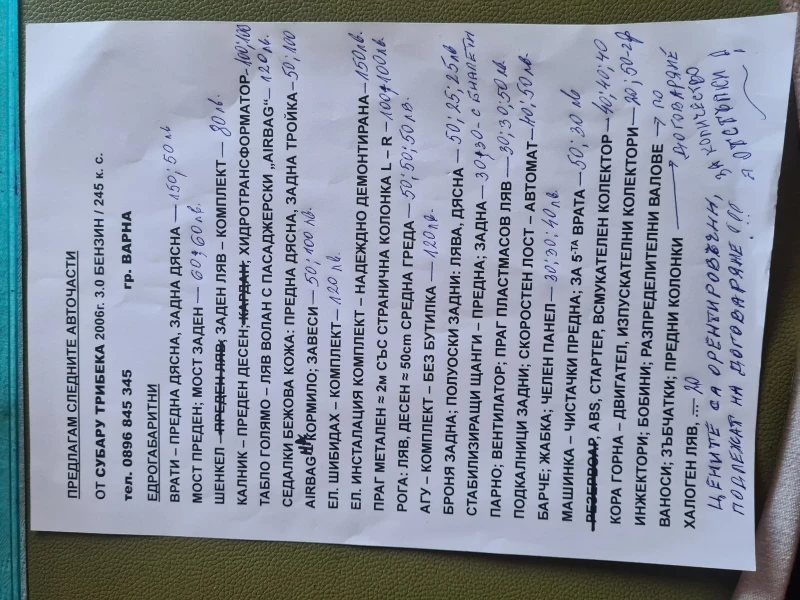 ПРЕДЛАГАМ СЛЕДНИТЕ АВТОЧАСТИ
ОТ СУБАРУ ТРИБЕКА 2006г. 3.0 БЕНЗИН / 245 к. с.
тел. 0896 845 345 гр. ВАРНА
ЕДРОГАБАРИТНИ
ВРАТИ – ПРЕДНА ДЯСНА, ЗАДНА ДЯСНА — 150; 50 лв
МОСТ ПРЕДЕН; МОСТ ЗАДЕН — 60; 60 лв.
ШЕНКЕЛ – ПРЕДЕН ЛЯВ; ЗАДЕН ЛЯВ - КОМПЛЕКТ — 80 лв.
КАЛНИК – ПРЕДЕН ДЕСЕН; КАРДАН; ХИДРОТРАНСФОРМАТОР - 100; 100
ТАБЛО ГОЛЯМО – ЛЯВ ВОЛАН С ПАСАДЖЕРСКИ „AIRBAG“ — 120 лв.
СЕДАЛКИ БЕЖОВА КОЖА: ПРЕДНА ДЯСНА, ЗАДНА ТРОЙКА - 50; 100
AIRBAG НА КОРМИЛО; ЗАВЕСИ — 50; 100 лв.
ЕЛ. ШИБИДАХ – КОМПЛЕКТ — 120 лв.
ЕЛ. ИНСТАЛАЦИЯ КОМПЛЕКТ – НАДЕЖДНО ДЕМОНТИРАНА — 150 лв.
ПРАГ МЕТАЛЕН ≈ 2м СЪС СТРАНИЧНА КОЛОНКА L – R - 100+100 лв.
РОГА: ЛЯВ, ДЕСЕН ≈ 50cm СРЕДНА ГРЕДА — 50; 50; 50 лв.
АГУ – КОМПЛЕКТ – БЕЗ БУТИЛКА — 120 лв.
БРОНЯ ЗАДНА; ПОЛУОСКИ ЗАДНИ: ЛЯВА, ДЯСНА — 50; 25; 25 лв
СТАБИЛИЗИРАЩИ ЩАНГИ – ПРЕДНА; ЗАДНА — 30; 30 - С БИАЛЕТИ
ПАРНО; ВЕНТИЛАТОР; ПРАГ ПЛАСТМАСОВ ЛЯВ — 30; 30; 50 лв
ПОДКАЛНИЦИ ЗАДНИ; СКОРОСТЕН ЛОСТ – АВТОМАТ — 40; 50 лв.
БАРЧЕ; ЖАБКА; ЧЕЛЕН ПАНЕЛ — 30; 30; 40 лв
МАШИНКА – ЧИСТАЧКИ ПРЕДНА; ЗА 5-ТА ВРАТА — 50; 30 лв
РЕЗЕРВОАР, ABS, СТАРТЕР, ВСМУКАТЕЛЕН КОЛЕКТОР — 40; 40; 40
КОРА ГОРНА – ДВИГАТЕЛ, ИЗПУСКАТЕЛНИ КОЛЕКТОРИ — 20; 50-2р
ИНЖЕКТОРИ; БОБИНИ; РАЗПРЕДЕЛИТЕЛНИ ВАЛОВЕ → ПО
ВАНОСИ; ЗЪБЧАТКИ; ПРЕДНИ КОЛОНКИ → ДОГОВАРЯНЕ
ХАЛОГЕН ЛЯВ, ...
ЦЕНИТЕ СА ОРЕНТИРОВЪЧНИ, ЗА КОЛИЧЕСТВО
ПОДЛЕЖАТ НА ДОГОВАРЯНЕ ОТСТЪПКИ